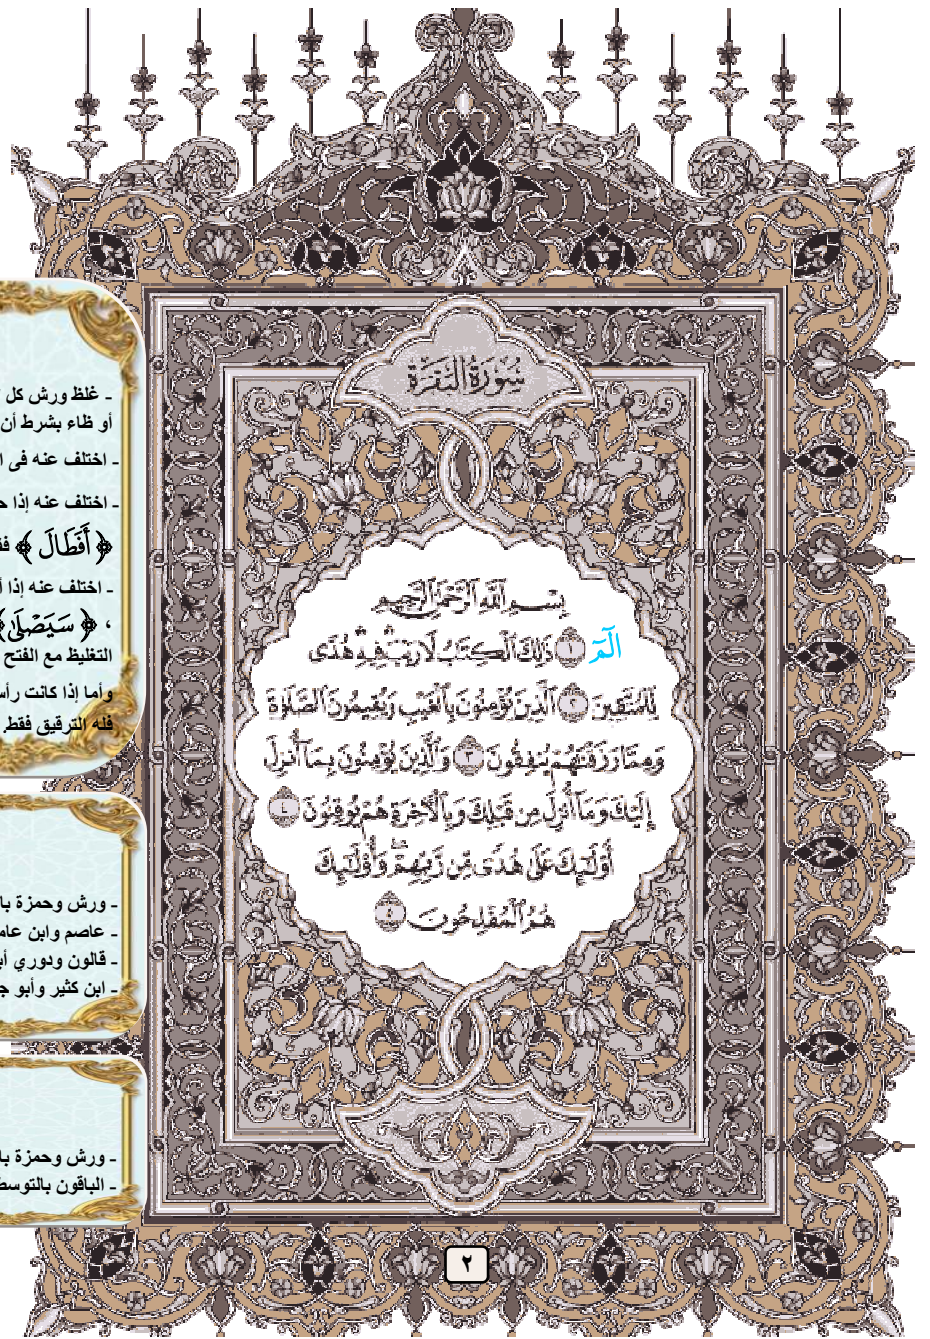 سُورَةُ الْبَقَرَةِ
بِسْمِ ٱللَّهِ ٱلرَّحْمَٰنِ ٱلرَّحِيمِ
الٓمٓ ١ ذَٰلِكَ ٱلْكِتَٰبُ لَا رَيْبَ ۛ فِيهِ ۛ هُدًى
لِّلْمُتَّقِينَ ٢ ٱلَّذِينَ يُؤْمِنُونَ بِٱلْغَيْبِ وَيُقِيمُونَ ٱلصَّلَوٰةَ
وَمِمَّا رَزَقْنَٰهُمْ يُنفِقُونَ ٣ وَٱلَّذِينَ يُؤْمِنُونَ بِمَآ أُنزِلَ
إِلَيْكَ وَمَآ أُنزِلَ مِن قَبْلِكَ وَبِٱلْءَاخِرَةِ هُمْ يُوقِنُونَ ٤
أُو۟لَٰٓئِكَ عَلَىٰ هُدًى مِّن رَّبِّهِمْ ۖ وَأُو۟لَٰٓئِكَ
هُمُ ٱلْمُفْلِحُونَ ٥
- غلظ ورش كل
أو ظاء بشرط أن
- اختلف عنه فى
- اختلف عنه إذا
﴿ أَفَطَالَ ﴾
- اختلف عنه إذا
، ﴿ سَيَصْلَىٰ ﴾
التغليظ مع الفتح
وأما إذا كانت
فله الترقيق فقط
- ورش وحمزة
- عاصم وابن
- قالون ودوري
- ابن كثير وأبو
- ورش وحمزة
- الباقون
٢